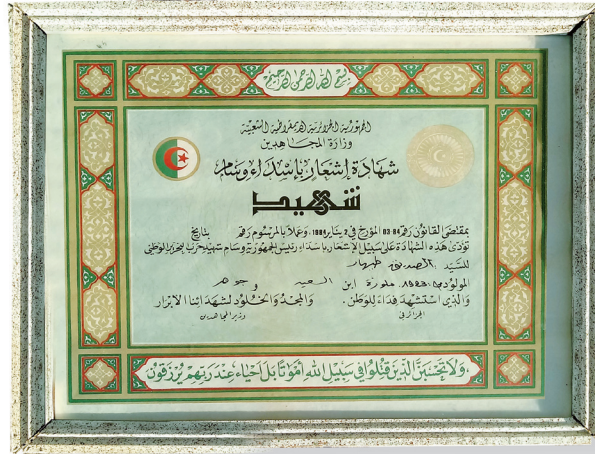 بسم الله الرحمن الرحيم
الجمهورية الجزائرية الديمقراطية الشعبية
وزارة المجاهدين
شهادة إشعار بإسداء وسام
شهيد
بمقتضى القانون رقم 84-03 المؤرخ في 2 يناير 1984، وعملا بالمرسوم رقم بتاريخ
تؤدى هذه الشهادة على سبيل الإشعار بإسداء رئيس الجمهورية وسام شهيد حرب التحرير الوطني
للسيد الصديق
المولود 1923 ابن السعيد و جوهر
والذي استشهد فداء للوطن. والمجد والخلود لشهدائنا الأبرار
الجزائر في وزير المجاهدين
ولا تحسبن الذين قتلوا في سبيل الله أمواتا بل أحياء عند ربهم يرزقون